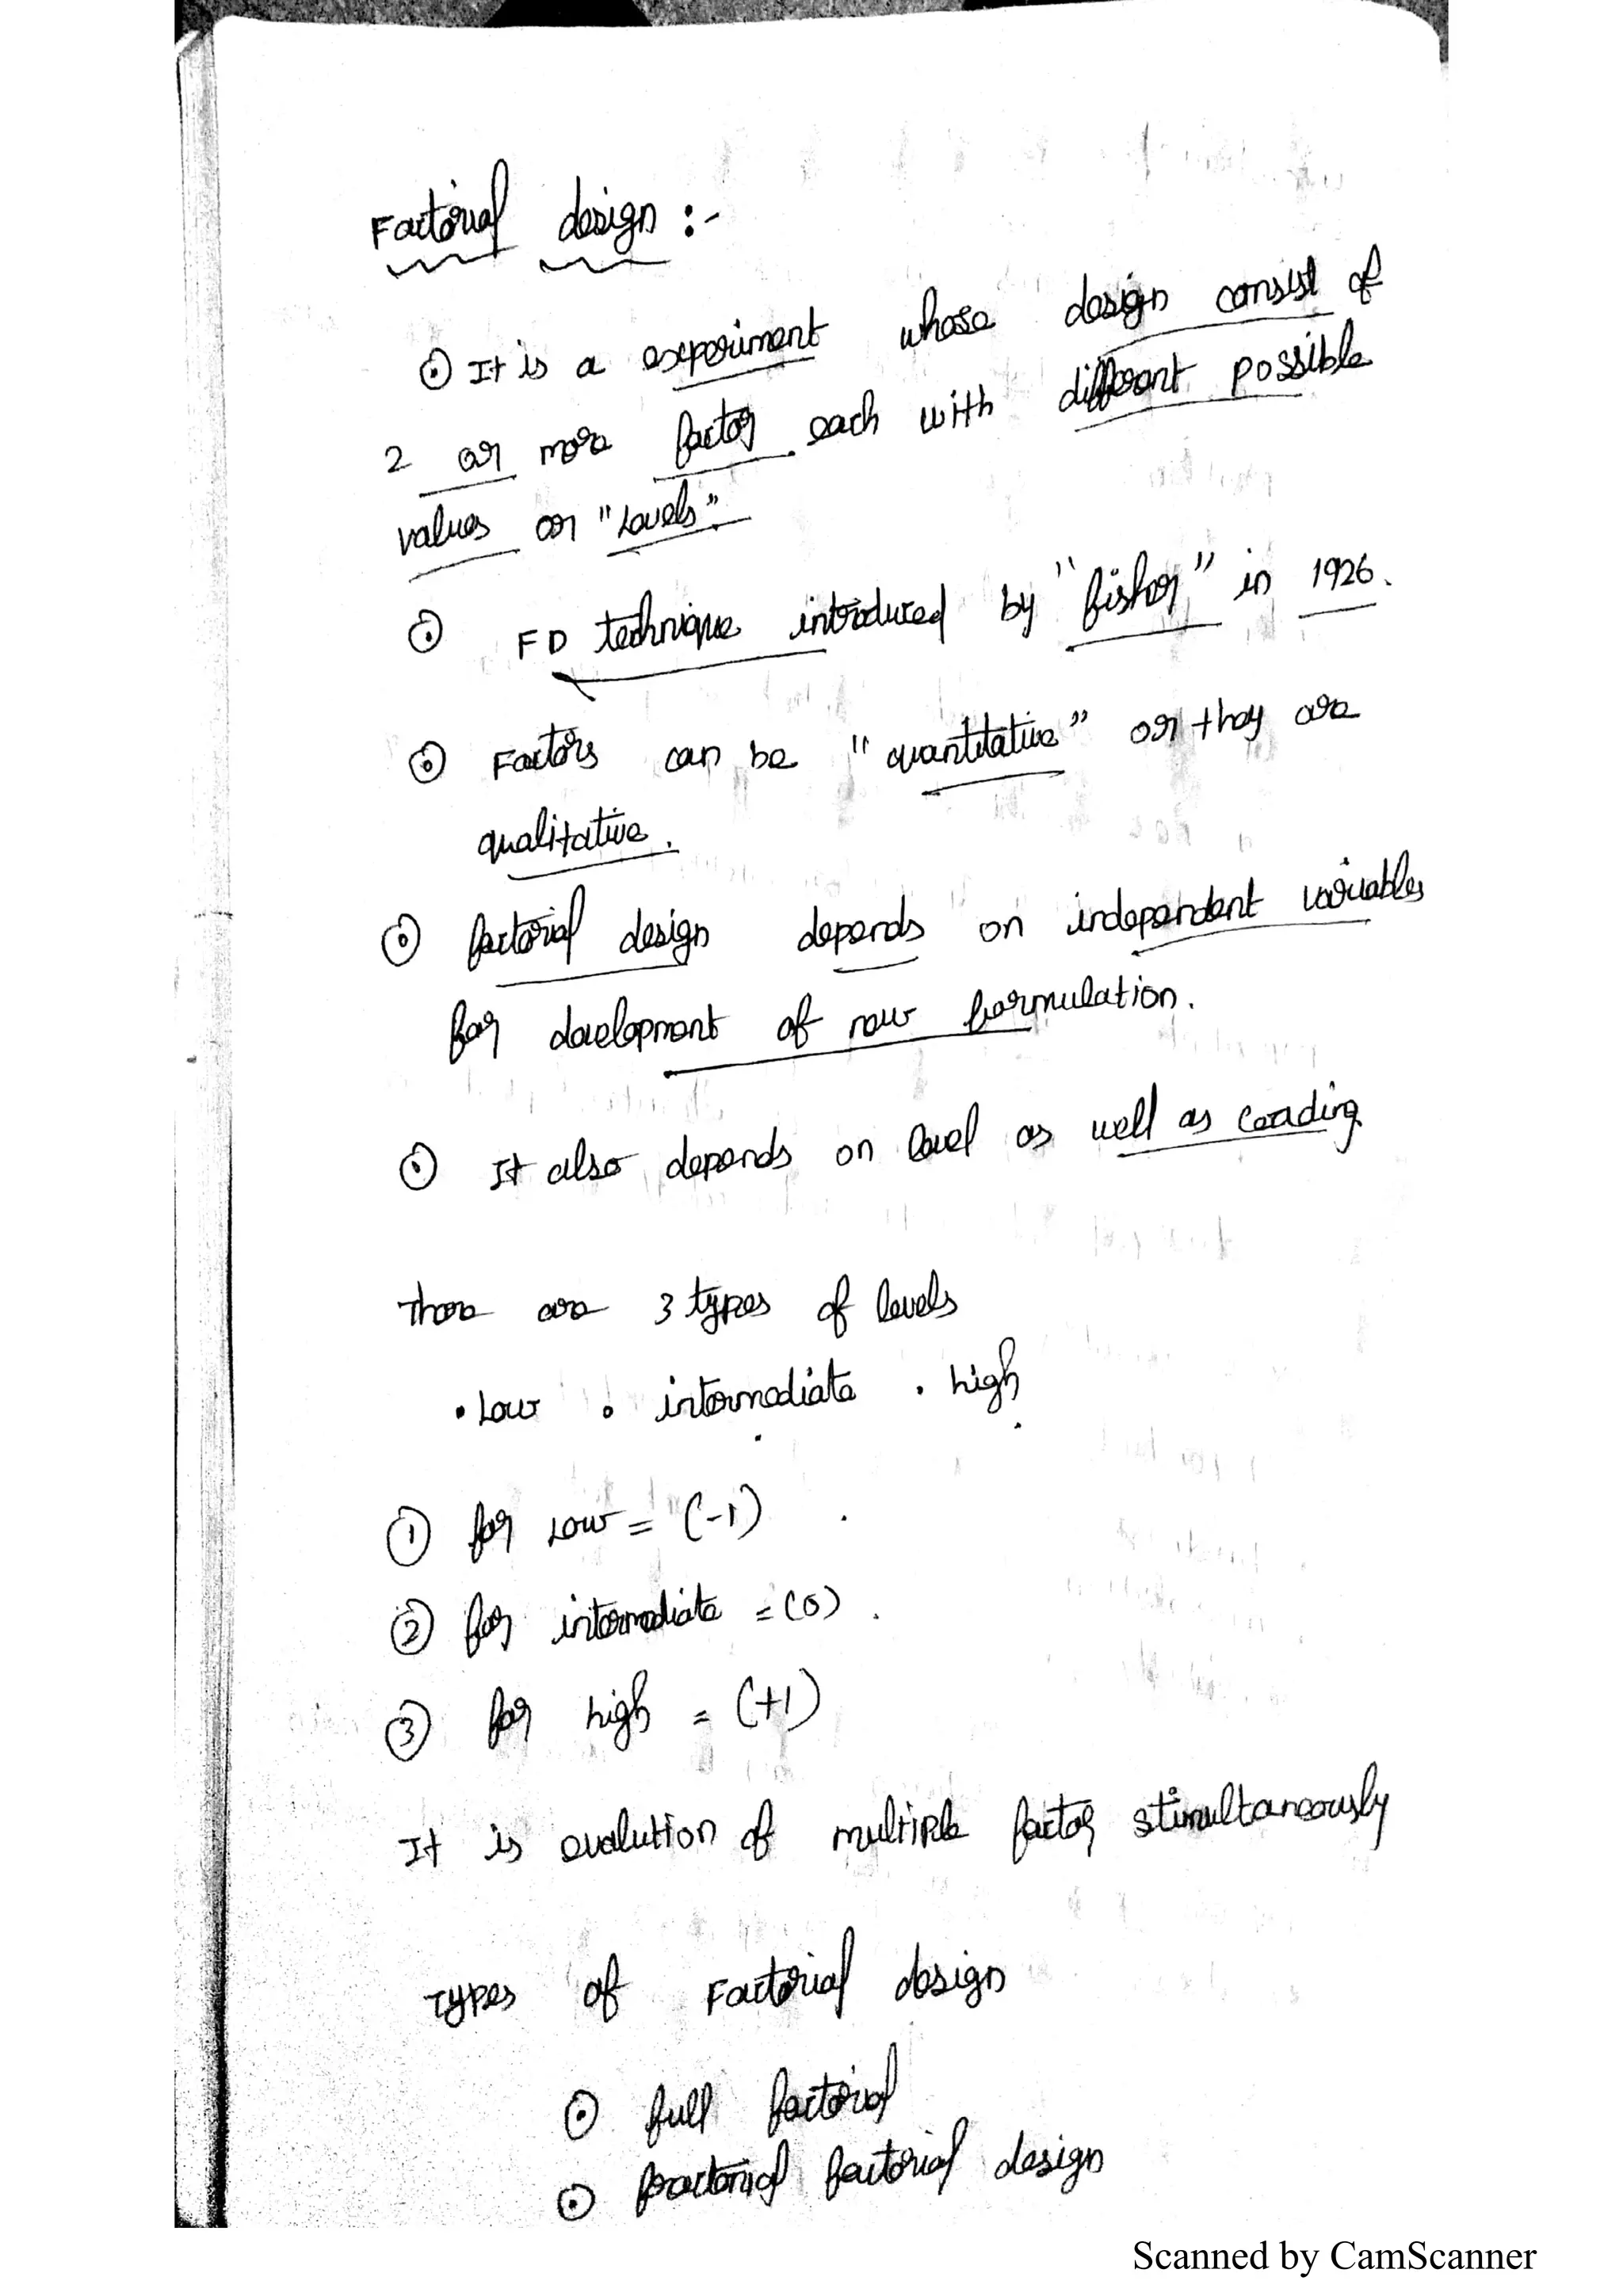 Factorial design :-
⊙ It is a experiment whose design consist of
2 or more factor each with different possible
values or "Levels".
⊙ FD technique introduced by "fisher" in 1926.
⊙ Factors can be "quantitative" or they are
qualitative.
⊙ factorial design depends on independent variables
for development of new formulation.
⊙ It also depends on level as well as coading
There are 3 types of levels
• Low • intermediate • high
① for Low = (-1)
② for intermediate = (0)
③ for high = (+1)
It is evalution of multiple factor stimultaneously
Types of Factorial design
⊙ full factorial
⊙ factorial design
Scanned by CamScanner